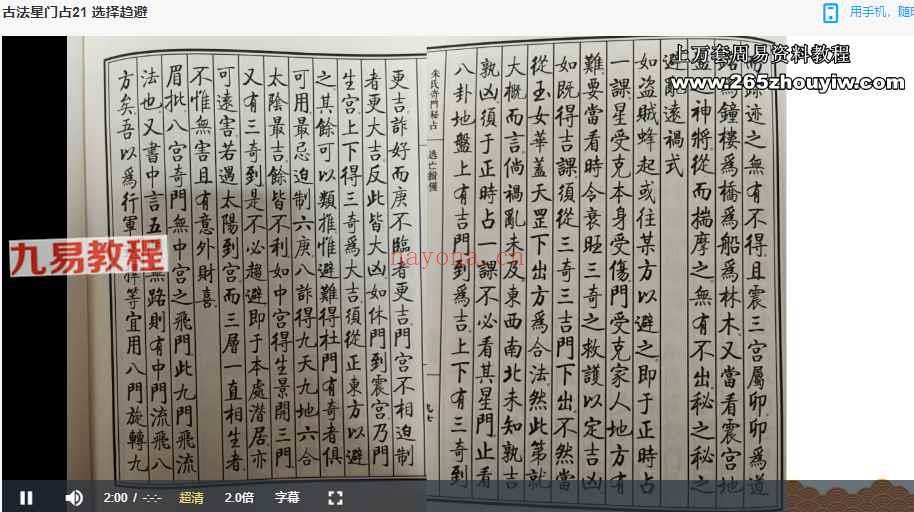 古法星门占21 选择趋避
用手机，随时
上万套周易资料教程
www.265zhouyiw.com
九易教程
nayona.cn
而踪迹之無有不得且震三宫屬卯卯為道
路為鐘樓為橋為船為林木又當看震宫地
盤神將從而揣摩之無有不出秘之秘之
避亂遠禍式
如盜賊蜂起或往某方以避之即于正時占
一課星受克本身受傷門受克家人地方有
難要當看時令衰旺三奇之救護以定吉凶
如既得吉課須從三奇三吉門下出不然當
從玉女華蓋天罡下出方為合法然此第就
大概而言倘禍亂未及東西南北未知孰吉
孰凶須于正時占一課不必看其星門止看
八卦地盤上有吉門到為吉上下有三奇到
朱氏奇門秘占
逃亡緝獲
九七
更吉詐好而庚不臨者更吉門宫不相迫制
者更大吉反此皆大凶如休門到震宫乃門
生宫上下得三奇為大吉須從正東方以避
之其餘可以類推惟避難得杜門有奇者俱
可用最忌迫制六庚八詐得九天九地六合
太陰最吉餘皆不利如中宫得生景開三門
又有三奇到是不必趨避即于本處潛居亦
可遠害若遇太陽到宫而三層一直相生者
不惟無害且有意外財喜
眉批八宫奇門無中宫之飛門此九門飛流
法也又書中言五
無路則有中門流飛八
方矣吾以為行軍
等宜用八門旋轉九
2:00 / -:-:-
超清
2.0倍
字幕